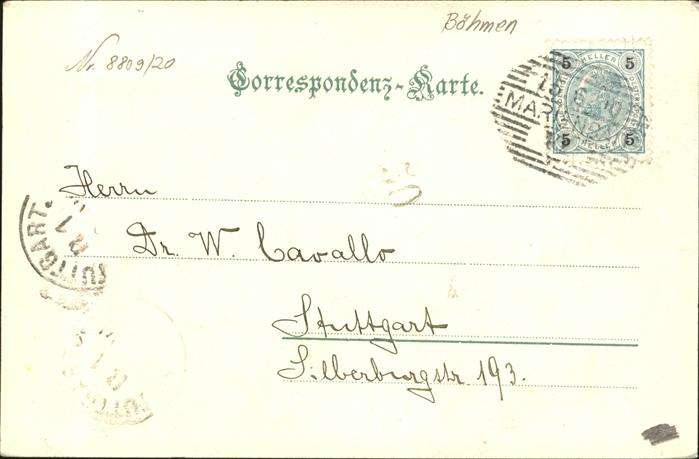 Böhmen
Nr. 8809/20
Correspondenz-Karte.
5 HELLER 5
5 HELLER 5
MAR
Herrn
Dr. W. Cavallo
Stuttgart
Silberburgstr. 193.
STUTTGART.